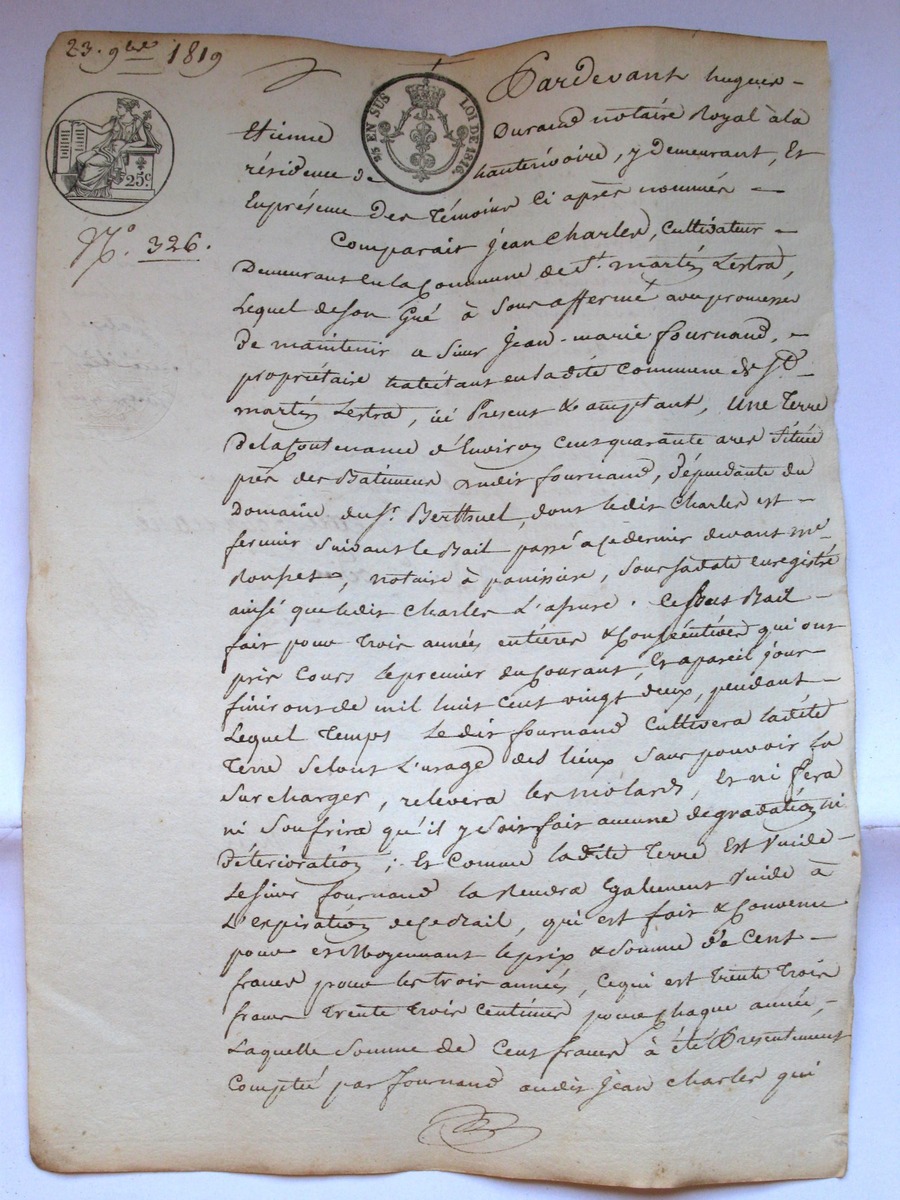 23. 9bre 1819
25c.
25 EN SUS LOI DE 1816.
N.o 326.
Pardevant hugues -
Etienne Durand notaire Royal à la
résidence de hauterivoire, y demeurant, Et
En présence des témoins Ci après nommés -
Comparait jean Charles, Cultivateur -
Demeurant en la Commune de St. martin Lestra,
Lequel de son Gré à Sous affermé avec promesse
De maintenir a Sieur Jean-marie fournand, -
propriétaire habitant en ladite Commune de St.
martin Lestra, ici Présent & acceptant, Une Terre
De la Contenance d'Environ Cent quarante ares Située
près des Bâtimens dudit fournand, Dépendante du
Domaine du Sr. Berthuel, dont ledit Charles est -
fermier Suivant le Bail passé a ce dernier devant me
notaire à panissière, Sous sa date enregistré
ainsi que ledit Charles L'assure. Ce Sous Bail -
fait pour trois années entières & Consécutives qui ont
pris Cours le premier du Courant, Et a pareil jour
finiront de mil huit Cent vingt deux, pendant -
Lequel Temps Ledit fournand Cultivera ladite
Terre Selont L'usage des lieux Sans pouvoir la
Surcharger, relevera les molards, Et ni fera
ni Soufrira qu'il y Soit fait aucune dégradation ni
Détérioration; Et Comme ladite Terre Est Vuide -
Le Sieur fournand la Rendra Egalement Vuide à
L'expiration de Ce Bail, qui est fait & Convenu
pour et Moyennant le prix & Somme de Cent -
francs pour les trois années, Ce qui est trente trois
francs trente trois Centimes pour Chaque année, -
Laquelle Somme de Cent francs à été Présentement
Comptée par Fournand audit Jean Charles qui